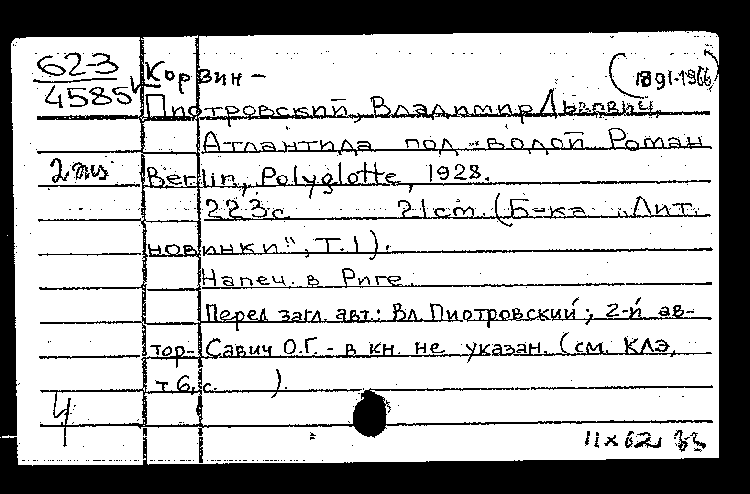 62-3
4585
Корвин-
(1891-1966)
Пиотровский, Владимир Львович
Атлантида под водой Роман
2 экз
Berlin, Polyglotte, 1928.
223с 21cm. (Б-ка "Лит.
новинки", Т.1).
Напеч. в Риге.
Перед загл. авт.: Вл. Пиотровский; 2-й ав-
тор- Савич О.Г. - в кн. не указан. (см. КЛЭ,
т 6, с. ).
4
11х62,